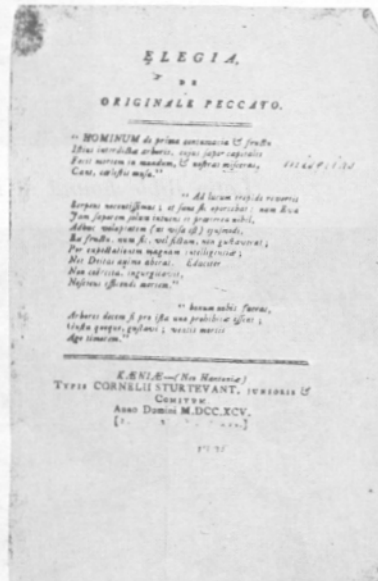 ELEGIA,
DE
ORIGINALE PECCATO.
" HOMINUM de prima contumacia & fructu
Istius interdictæ arboris, cujus sapor capitalis
Fecit mortem in mundum, & nostras miserias,
Cane, cælestis musa."
" Ad lucum trepide revertit
Serpens nocentissimus; et sane sic oportebat: nam Eva
Jam saporem solum intuens et præterea nihil,
Adhuc voluptatem (ut visa est) ejusmodi,
Ea fructu, num sic, vel fictam, non gustaverat;
Per expectationem magnam intelligentiæ;
Nec Deitas animo aberat. Edaciter
Non coercita, ingurgitavit,
Nesciens efficendi mortem."
" bonum nobis fueras,
Arbores decem si pro ista una prohibitæ essent;
gustavi; venit mortis
Age timorem."
KÆNIÆ—(Nov Hantoniæ)
TYPIS CORNELII STURTEVANT, JUNIORIS &
COMITUM.
Anno Domini M.DCC.XCV.